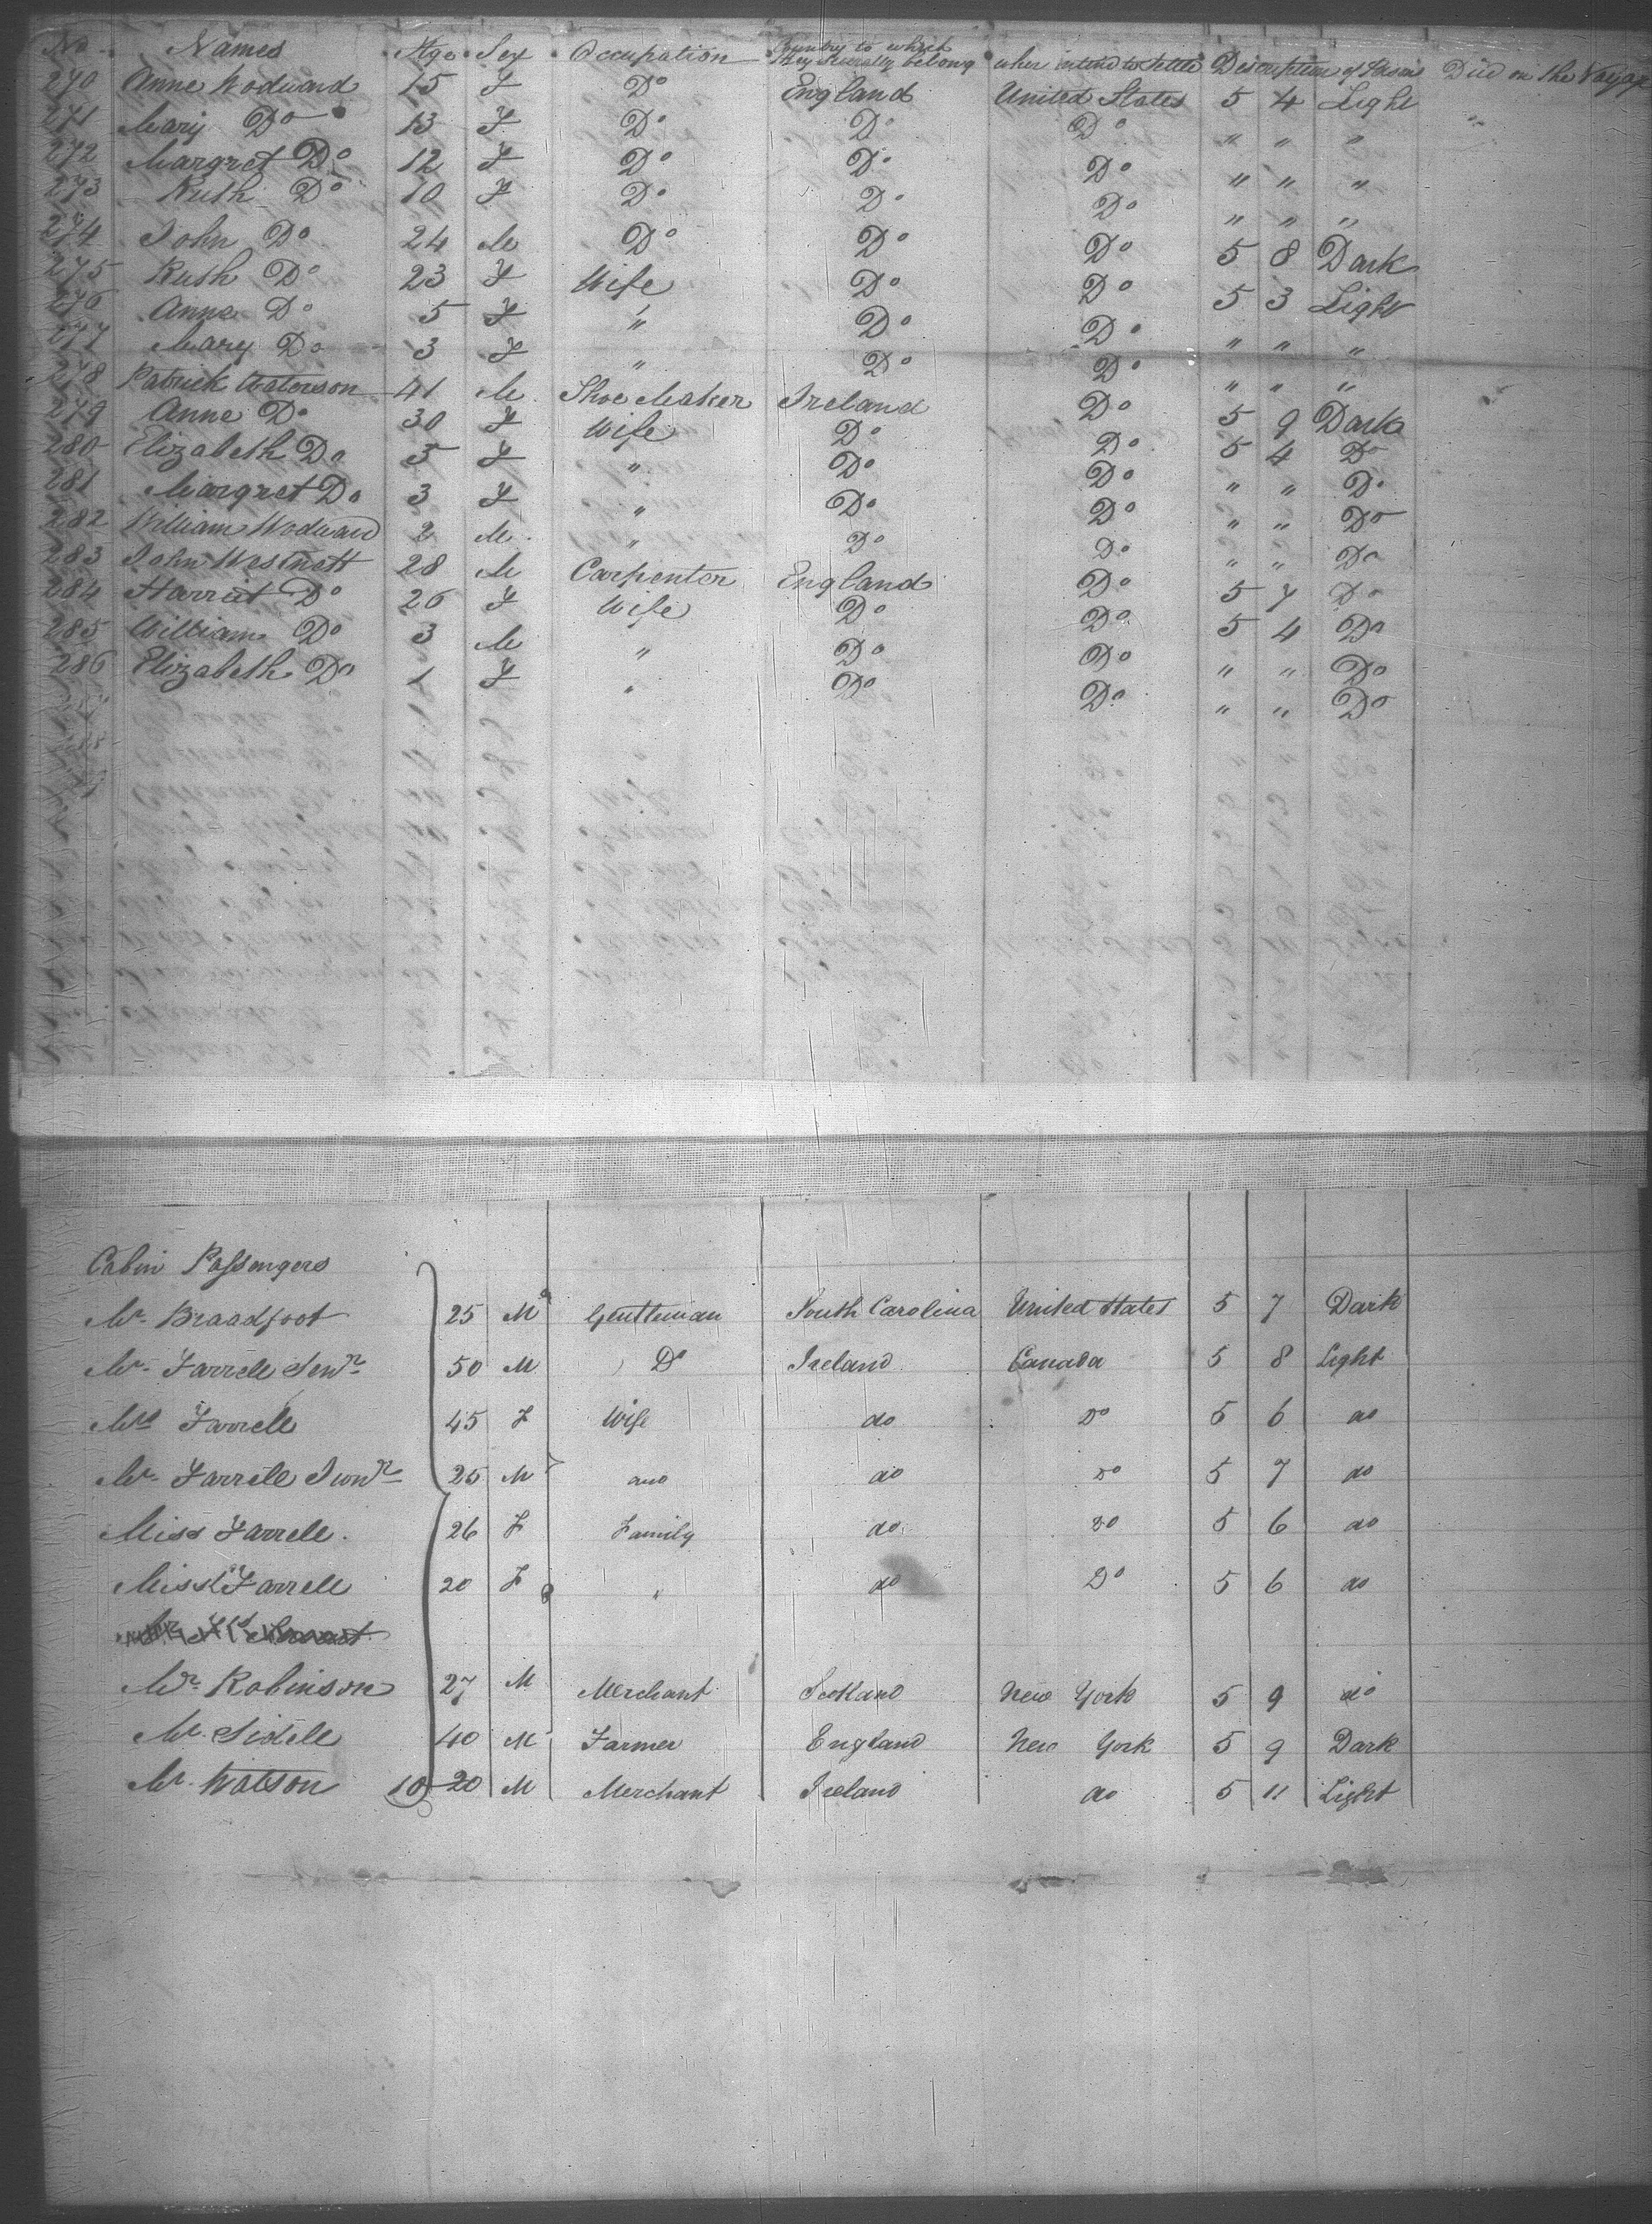 No. Names Age Sex Occupation Country to which they severally belong wher intend to settle Description of Died on the Voyage
270 Anne Wodward 15 F Do England United States 5 4 Light
271 Mary Do 13 F Do Do Do " " "
272 Margret Do 12 F Do Do Do " " "
273 Ruth Do 10 F Do Do Do " " "
274 John Do 24 M Do Do Do 5 8 Dark
275 Ruth Do 23 F Wife Do Do 5 3 Light
276 Anne Do 5 F " Do Do " " "
277 Mary Do 3 F " Do Do " " "
278 Patrick Waterson 41 M Shoe Maker Ireland Do 5 9 Dark
279 Anne Do 30 F Wife Do Do 5 4 Do
280 Elizabeth Do 5 F " Do Do " " Do
281 Margret Do 3 F " Do Do " " Do
282 William Wodward 2 M " Do Do " " Do
283 John 28 M Carpenter England Do 5 7 Do
284 Harriet Do 26 F Wife Do Do 5 4 Do
285 William Do 3 M " Do Do " " Do
286 Elizabeth Do 1 F " Do Do " " Do
Cabin Passengers
Mr. Broadfoot 25 M Gentleman South Carolina United States 5 7 Dark
Mr. Farrell Senr 50 M Do Ireland Canada 5 8 Light
Mrs Farrell 45 F Wife do Do 5 6 do
Mr. Farrell Junr 25 M and do do 5 7 do
Miss Farrell. 26 F Family do do 5 6 do
Miss Farrell 20 F " do Do 5 6 do
Mr. Robinson 27 M Merchant Scotland New York 5 9 do
Mr. 40 M Farmer England New York 5 9 Dark
Mr. Watson 10 20 M Merchant Ireland do 5 11 Light